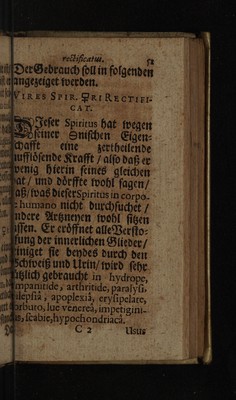 rectificatus. 51
Der Gebrauch soll in folgenden
angezeiget werden.
VIRES SPIR. ♀RI RECTIFI-
CAT.
DJeser Spiritus hat wegen
seiner Snischen Eigen-
schafft eine zertheilende
auflösende Krafft / also daß er
wenig hierin seines gleichen
hat / und dörffte wohl sagen /
daß / was dieser Spiritus in corpo-
re humano nicht durchsuchet /
andere Artzneyen wohl sitzen
lassen. Er eröffnet alle Versto-
fung der innerlichen Glieder /
reiniget sie beydes durch den
Schweiß und Urin / wird sehr
nützlich gebraucht in hydrope,
tympanitide, arthritide, paralysi,
epilepsiâ, apoplexiâ, erysipelare,
scorbuto, lue venereâ, impetigini-
bus, scabie, hypochondriacâ.
C 2 Usus